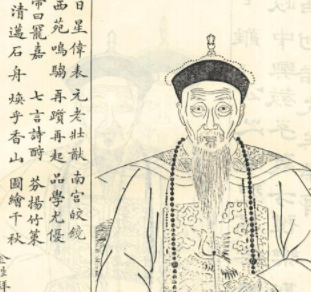 日星偉表 元老壯猷 南宮皎
西苑鳴騶 再躓再起 品學尤優
帝曰寵嘉 七言詩酧 芬揚竹策
清邁石舟 煥乎香山 圖繪千秋